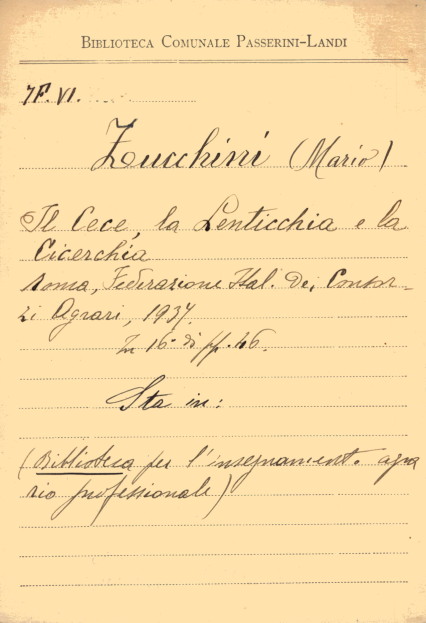 BIBLIOTECA COMUNALE PASSERINI-LANDI
7F. VI.
Zucchini (Mario)
Il Cece, la Lenticchia e la
Cicerchia
Roma, Federazione Ital. Dei Consor-
zi Agrari, 1937.
In 16° di pp. 46.
Sta in:
(Biblioteca per l'insegnamento agra
rio professionale)